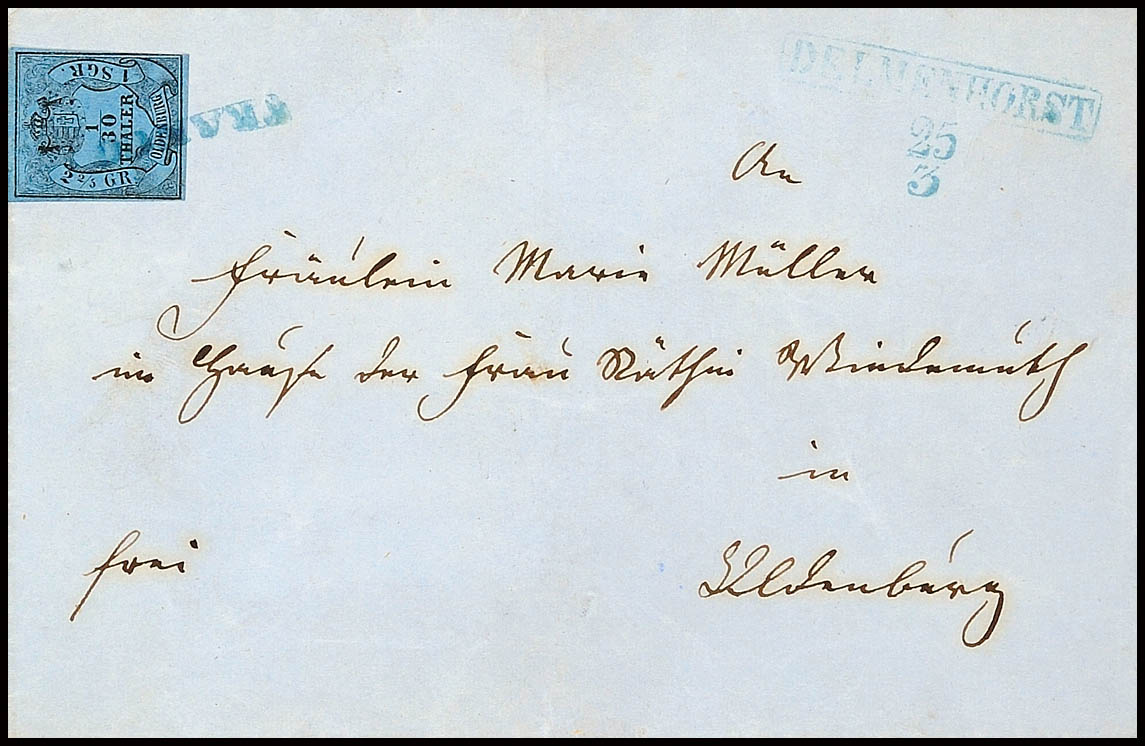 1 SGR.
1/30
THALER
OLDENBURG
2 2/3 GR.
FRA
DELMENHORST
25
3
An
Fräulein Marie Müller
im Hause der Frau Räthin Wiedemuth
in
Oldenburg
frei